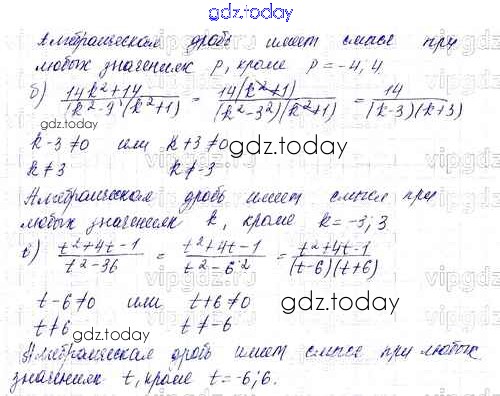 gdz.today
Алгебраическая дробь имеет смысл при
любых значениях p, кроме p = -4, 4
б) (14k²+14)/((k²-9)(k²+1)) = (14(k²+1))/((k²-3²)(k²+1)) = 14/((k-3)(k+3))
k-3≠0 или k+3≠0
gdz.today
k≠3 k≠-3
Алгебраическая дробь имеет смысл при
любых значениях k, кроме k = -3; 3
в) (t²+4t-1)/(t²-36) = (t²+4t-1)/(t²-6²) = (t²+4t-1)/((t-6)(t+6))
t-6≠0 или t+6≠0
gdz.today
t≠6 t≠-6
gdz.today
Алгебраическая дробь имеет смысл при любых
значениях t, кроме t = -6; 6.